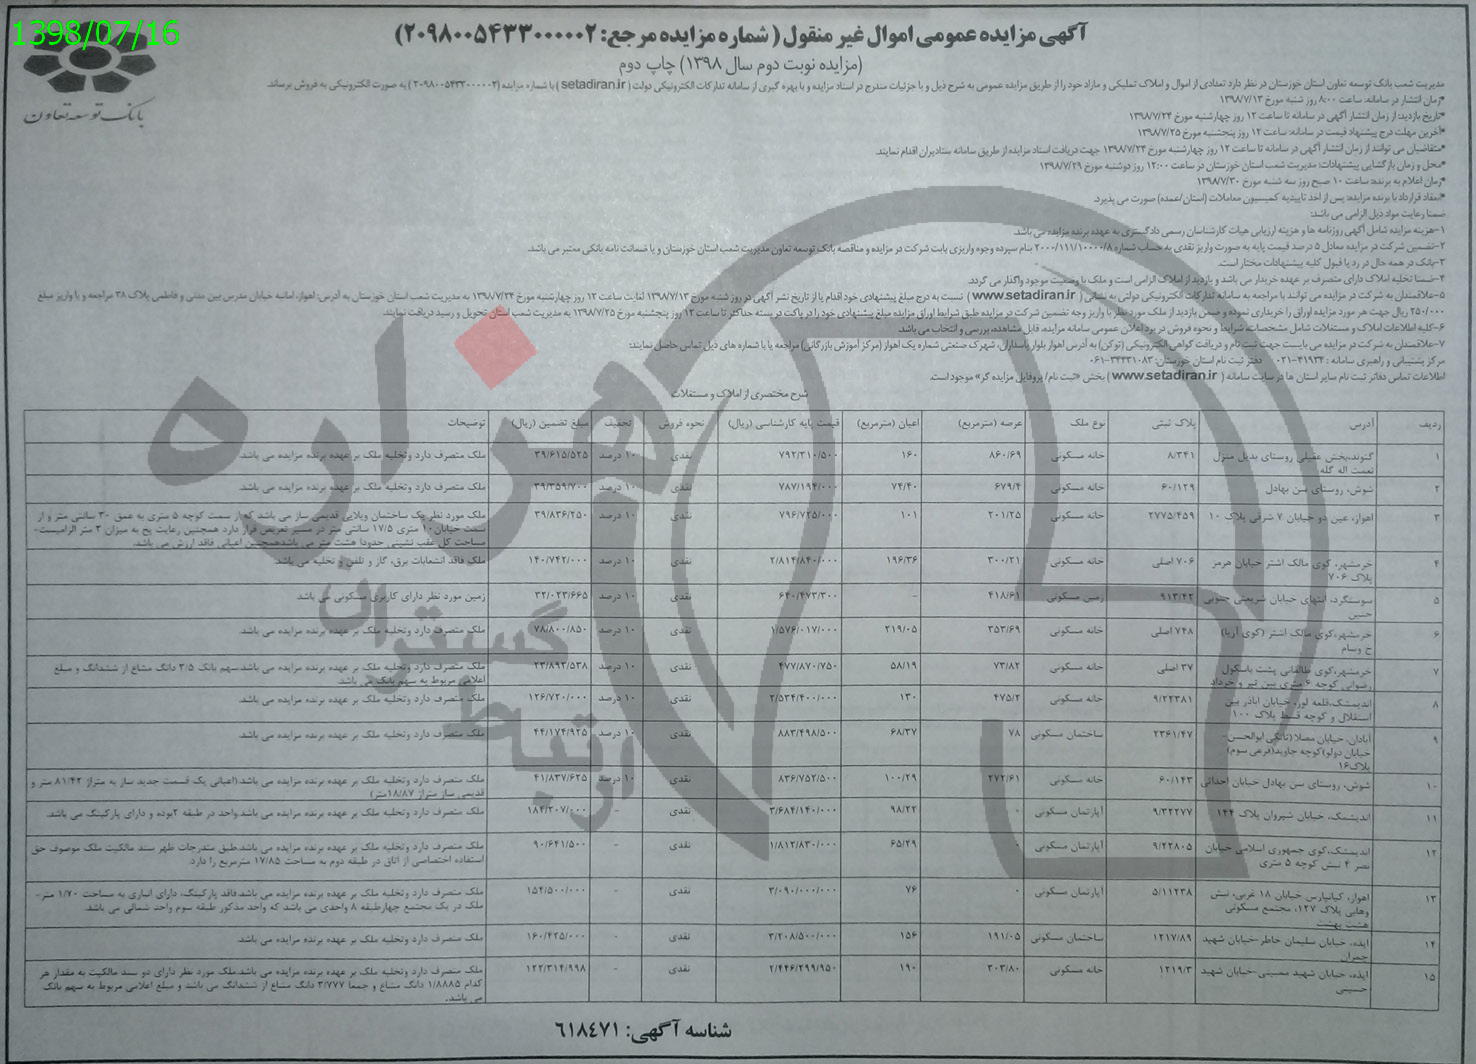 1398/07/16
بانک توسعه تعاون
آگهی مزایده عمومی اموال غیر منقول (شماره مزایده مرجع: ۲۰۹۸۰۰۵۴۳۳۰۰۰۰۰۲)
(مزایده نوبت دوم سال ۱۳۹۸) چاپ دوم
مدیریت شعب بانک توسعه تعاون استان خوزستان در نظر دارد تعدادی از اموال و املاک تملیکی و مازاد خود را از طریق مزایده عمومی به شرح ذیل و با جزئیات مندرج در اسناد مزایده و با بهره گیری از سامانه تدارکات الکترونیکی دولت (setadiran.ir) با شماره مزایده (۲۰۹۸۰۰۵۴۳۳۰۰۰۰۰۲) به صورت الکترونیکی به فروش برساند.
*زمان انتشار در سامانه: ساعت ۸:۰۰ روز شنبه مورخ ۱۳۹۸/۷/۱۳
*تاریخ بازدید: از زمان انتشار آگهی در سامانه تا ساعت ۱۲ روز چهارشنبه مورخ ۱۳۹۸/۷/۲۴
*آخرین مهلت درج پیشنهاد قیمت در سامانه: ساعت ۱۲ روز پنجشنبه مورخ ۱۳۹۸/۷/۲۵
*متقاضیان می توانند از زمان انتشار آگهی در سامانه تا ساعت ۱۲ روز چهارشنبه مورخ ۱۳۹۸/۷/۲۴ جهت دریافت اسناد مزایده از طریق سامانه ستادیران اقدام نمایند.
*محل و زمان بازگشایی پیشنهادات: مدیریت شعب استان خوزستان در ساعت ۱۲:۰۰ روز دوشنبه مورخ ۱۳۹۸/۷/۲۹
*زمان اعلام به برنده: ساعت ۱۰ صبح روز سه شنبه مورخ ۱۳۹۸/۷/۳۰
*انعقاد قرارداد با برنده مزایده: پس از اخذ تاییدیه کمیسیون معاملات (استان/عمده) صورت می پذیرد.
ضمنا رعایت مواد ذیل الزامی می باشد:
۱-هزینه مزایده شامل آگهی روزنامه ها و هزینه ارزیابی هیات کارشناسان رسمی دادگستری به عهده برنده مزایده می باشد.
۲-تضمین شرکت در مزایده معادل ۵ درصد قیمت پایه به صورت واریز نقدی به حساب شماره ۲۰۰۰/۱۱۱/۱۰۰۰۰/۸ بنام سپرده وجوه واریزی بابت شرکت در مزایده و مناقصه بانک توسعه تعاون مدیریت شعب استان خوزستان و یا ضمانت نامه بانکی معتبر می باشد.
۳-بانک در همه حال در رد یا قبول کلیه پیشنهادات مختار است.
۴-ضمنا تخلیه املاک دارای متصرف بر عهده خریدار می باشد و بازدید از املاک الزامی است و ملک با وضعیت موجود واگذار می گردد.
۵-علاقمندان به شرکت در مزایده می توانند با مراجعه به سامانه تدارکات الکترونیکی دولتی به نشانی (www.setadiran.ir) نسبت به درج مبلغ پیشنهادی خود اقدام یا از تاریخ نشر آگهی در روز شنبه مورخ ۱۳۹۸/۷/۱۳ لغایت ساعت ۱۲ روز چهارشنبه مورخ ۱۳۹۸/۷/۲۴ به مدیریت شعب استان خوزستان به آدرس: اهواز، امانیه خیابان مدرس بین مدنی و فاطمی پلاک ۳۸ مراجعه و با واریز مبلغ
۲۵۰/۰۰۰ ریال جهت هر مورد مزایده اوراق را خریداری نموده و ضمن بازدید از ملک مورد نظر با واریز وجه تضمین شرکت در مزایده طبق شرایط اوراق مزایده مبلغ پیشنهادی خود را در پاکت در بسته حداکثر تا ساعت ۱۲ روز پنجشنبه مورخ ۱۳۹۸/۷/۲۵ به مدیریت شعب استان تحویل و رسید دریافت نمایند.
۶-کلیه اطلاعات املاک و مستغلات شامل مشخصات، شرایط و نحوه فروش در برد اعلان عمومی سامانه مزایده، قابل مشاهده، بررسی و انتخاب می باشد.
۷-علاقمندان به شرکت در مزایده می بایست جهت ثبت نام و دریافت گواهی الکترونیکی (توکن) به آدرس اهواز بلوار پاسداران، شهرک صنعتی شماره یک اهواز (مرکز آموزش بازرگانی) مراجعه یا با شماره های ذیل تماس حاصل نمایند:
مرکز پشتیبانی و راهبری سامانه: ۴۱۹۳۴-۰۲۱ دفتر ثبت نام استان خوزستان: ۳۴۴۳۱۰۸۳-۰۶۱
اطلاعات تماس دفاتر ثبت نام سایر استان ها در سایت سامانه (www.setadiran.ir) بخش «ثبت نام/پروفایل مزایده گر» موجود است.
شرح مختصری از املاک و مستغلات
ردیف آدرس پلاک ثبتی نوع ملک عرصه (مترمربع) اعیان (مترمربع) قیمت پایه کارشناسی (ریال) نحوه فروش تخفیف مبلغ تضمین (ریال) توضیحات
۱ گتوند،بخش عقیلی روستای بدیل منزل نعمت اله گله ۸/۳۴۱ خانه مسکونی ۸۶۰/۶۹ ۱۶۰ ۷۹۲/۳۱۰/۵۰۰ نقدی ۱۰ درصد ۳۹/۶۱۵/۵۲۵ ملک متصرف دارد وتخلیه ملک بر عهده برنده مزایده می باشد.
۲ شوش، روستای سن بهادل ۶۰/۱۲۹ خانه مسکونی ۶۷۹/۴ ۷۴/۴۰ ۷۸۷/۱۹۴/۰۰۰ نقدی ۱۰ درصد ۳۹/۳۵۹/۷۰۰ ملک متصرف دارد وتخلیه ملک بر عهده برنده مزایده می باشد.
۳ اهواز، عین دو خیابان ۷ شرقی پلاک ۱۰ ۲۷۷۵/۴۵۹ خانه مسکونی ۲۰۱/۲۵ ۱۰۱ ۷۹۶/۷۲۵/۰۰۰ نقدی ۱۰ درصد ۳۹/۸۳۶/۲۵۰ ملک مورد نظر یک ساختمان ویلایی قدیمی ساز می باشد که از سمت کوچه ۵ متری به عمق ۳۰ سانتی متر و از سمت خیابان ۱۰ متری ۱۷/۵ سانتی متر در مسیر تعریض قرار دارد همچنین رعایت پخ به میزان ۳ متر الزامیست- مساحت کل عقب نشینی حدودا هشت متر می باشدهمچنین اعیانی فاقد ارزش می باشد.
۴ خرمشهر، کوی مالک اشتر خیابان هرمز پلاک ۷۰۶ ۷۰۶ اصلی خانه مسکونی ۳۰۰/۲۱ ۱۹۶/۳۶ ۲/۸۱۴/۸۴۰/۰۰۰ نقدی ۱۰ درصد ۱۴۰/۷۴۲/۰۰۰ ملک فاقد انشعابات برق، گاز و تلفن و تخلیه می باشد.
۵ سوسنگرد، انتهای خیابان شریعتی جنوبی ۹۱۳/۴۲ زمین مسکونی ۴۱۸/۶۱ - ۶۴۰/۴۷۳/۳۰۰ نقدی ۱۰ درصد ۳۲/۰۲۳/۶۶۵ زمین مورد نظر دارای کاربری مسکونی می باشد
۶ خرمشهر،کوی مالک اشتر (کوی آریا) خ وسام ۷۴۸ اصلی خانه مسکونی ۳۵۳/۶۹ ۲۱۹/۰۵ ۱/۵۷۶/۰۱۷/۰۰۰ نقدی ۱۰ درصد ۷۸/۸۰۰/۸۵۰ ملک متصرف دارد وتخلیه ملک بر عهده برنده مزایده می باشد.
۷ خرمشهر،کوی طالقانی پشت باسکول رضوانی کوچه ۶ متری بین تیر و خرداد ۳۷ اصلی خانه مسکونی ۷۳/۸۲ ۵۸/۱۹ ۴۷۷/۸۷۰/۷۵۰ نقدی ۱۰ درصد ۲۳/۸۹۳/۵۳۸ ملک متصرف دارد وتخلیه ملک بر عهده برنده مزایده می باشد.سهم بانک ۳/۵ دانگ مشاع از ششدانگ و مبلغ اعلامی مربوط به سهم بانک می باشد.
۸ اندیمشک،قلعه لور، خیابان اباذر بین استقلال و کوچه قسط پلاک ۱۰۰ ۹/۲۲۳۸۱ خانه مسکونی ۴۷۵/۲ ۱۳۰ ۲/۵۳۴/۴۰۰/۰۰۰ نقدی ۱۰ درصد ۱۲۶/۷۲۰/۰۰۰ ملک متصرف دارد وتخلیه ملک بر عهده برنده مزایده می باشد.
۹ آبادان، خیابان مصلا(تانکی ابوالحسن- خیابان دولو)کوچه جاوید(فرعی سوم) پلاک۱۶ ۲۳۶۱/۴۷ ساختمان مسکونی ۷۸ ۶۸/۳۷ ۸۸۳/۴۹۸/۵۰۰ نقدی ۱۰ درصد ۴۴/۱۷۴/۹۲۵ ملک متصرف دارد وتخلیه ملک بر عهده برنده مزایده می باشد.
۱۰ شوش، روستای سن بهادل خیابان احداثی ۶۰/۱۴۳ خانه مسکونی ۲۷۲/۶۱ ۱۰۰/۲۹ ۸۳۶/۷۵۲/۵۰۰ نقدی ۱۰ درصد ۴۱/۸۳۷/۶۲۵ ملک متصرف دارد وتخلیه ملک بر عهده برنده مزایده می باشد(اعیانی یک قسمت جدید ساز به متراژ ۸۱/۴۲ متر و قدیمی ساز متراژ ۱۸/۸۷متر)
۱۱ اندیمشک، خیابان شیروان پلاک ۱۴۴ ۹/۳۲۲۷۷ آپارتمان مسکونی ۰ ۹۸/۲۲ ۳/۶۸۴/۱۴۰/۰۰۰ نقدی - ۱۸۴/۲۰۷/۰۰۰ ملک متصرف دارد وتخلیه ملک بر عهده برنده مزایده می باشد.واحد در طبقه ۲بوده و دارای پارکینگ می باشد.
۱۲ اندیمشک،کوی جمهوری اسلامی خیابان نصر ۴ نبش کوچه ۵ متری ۹/۲۲۸۰۵ آپارتمان مسکونی ۰ ۶۵/۲۹ ۱/۸۱۲/۸۳۰/۰۰۰ نقدی - ۹۰/۶۴۱/۵۰۰ ملک متصرف دارد وتخلیه ملک بر عهده برنده مزایده می باشد.طبق مندرجات ظهر سند مالکیت ملک موصوف حق استفاده اختصاصی از اتاق در طبقه دوم به مساحت ۱۷/۸۵ مترمربع را دارد.
۱۳ اهواز، کیانپارس خیابان ۱۸ غربی، نبش وهابی پلاک ۱۲۷، مجتمع مسکونی هشت بهشت ۵/۱۱۲۳۸ آپارتمان مسکونی ۰ ۷۶ ۳/۰۹۰/۰۰۰/۰۰۰ نقدی - ۱۵۴/۵۰۰/۰۰۰ ملک متصرف دارد وتخلیه ملک بر عهده برنده مزایده می باشد.فاقد پارکینگ، دارای انباری به مساحت ۱/۷۰ متر- ملک در یک مجتمع چهارطبقه ۸ واحدی می باشد که واحد مذکور طبقه سوم واحد شمالی می باشد.
۱۴ ایذه، خیابان سلیمان خاطر-خیابان شهید چمران ۱۲۱۷/۸۹ ساختمان مسکونی ۱۹۱/۰۵ ۱۵۶ ۳/۲۰۸/۵۰۰/۰۰۰ نقدی - ۱۶۰/۴۲۵/۰۰۰ ملک متصرف دارد وتخلیه ملک بر عهده برنده مزایده می باشد.
۱۵ ایذه، خیابان شهید ممبینی-خیابان شهید حسینی ۱۲۱۹/۳ خانه مسکونی ۳۰۳/۸۰ ۱۹۰ ۲/۴۴۶/۲۹۹/۹۵۰ نقدی - ۱۲۲/۳۱۴/۹۹۸ ملک متصرف دارد وتخلیه ملک بر عهده برنده مزایده می باشد.ملک مورد نظر دارای دو سند مالکیت به مقدار هر کدام ۱/۸۸۸۵ دانگ مشاع و جمعا ۳/۷۷۷ دانگ مشاع از ششدانگ می باشد و مبلغ اعلامی مربوط به سهم بانک می باشد.
شناسه آگهی: ۶۱۸۴۷۱
هزاره
گستران
ارتباط